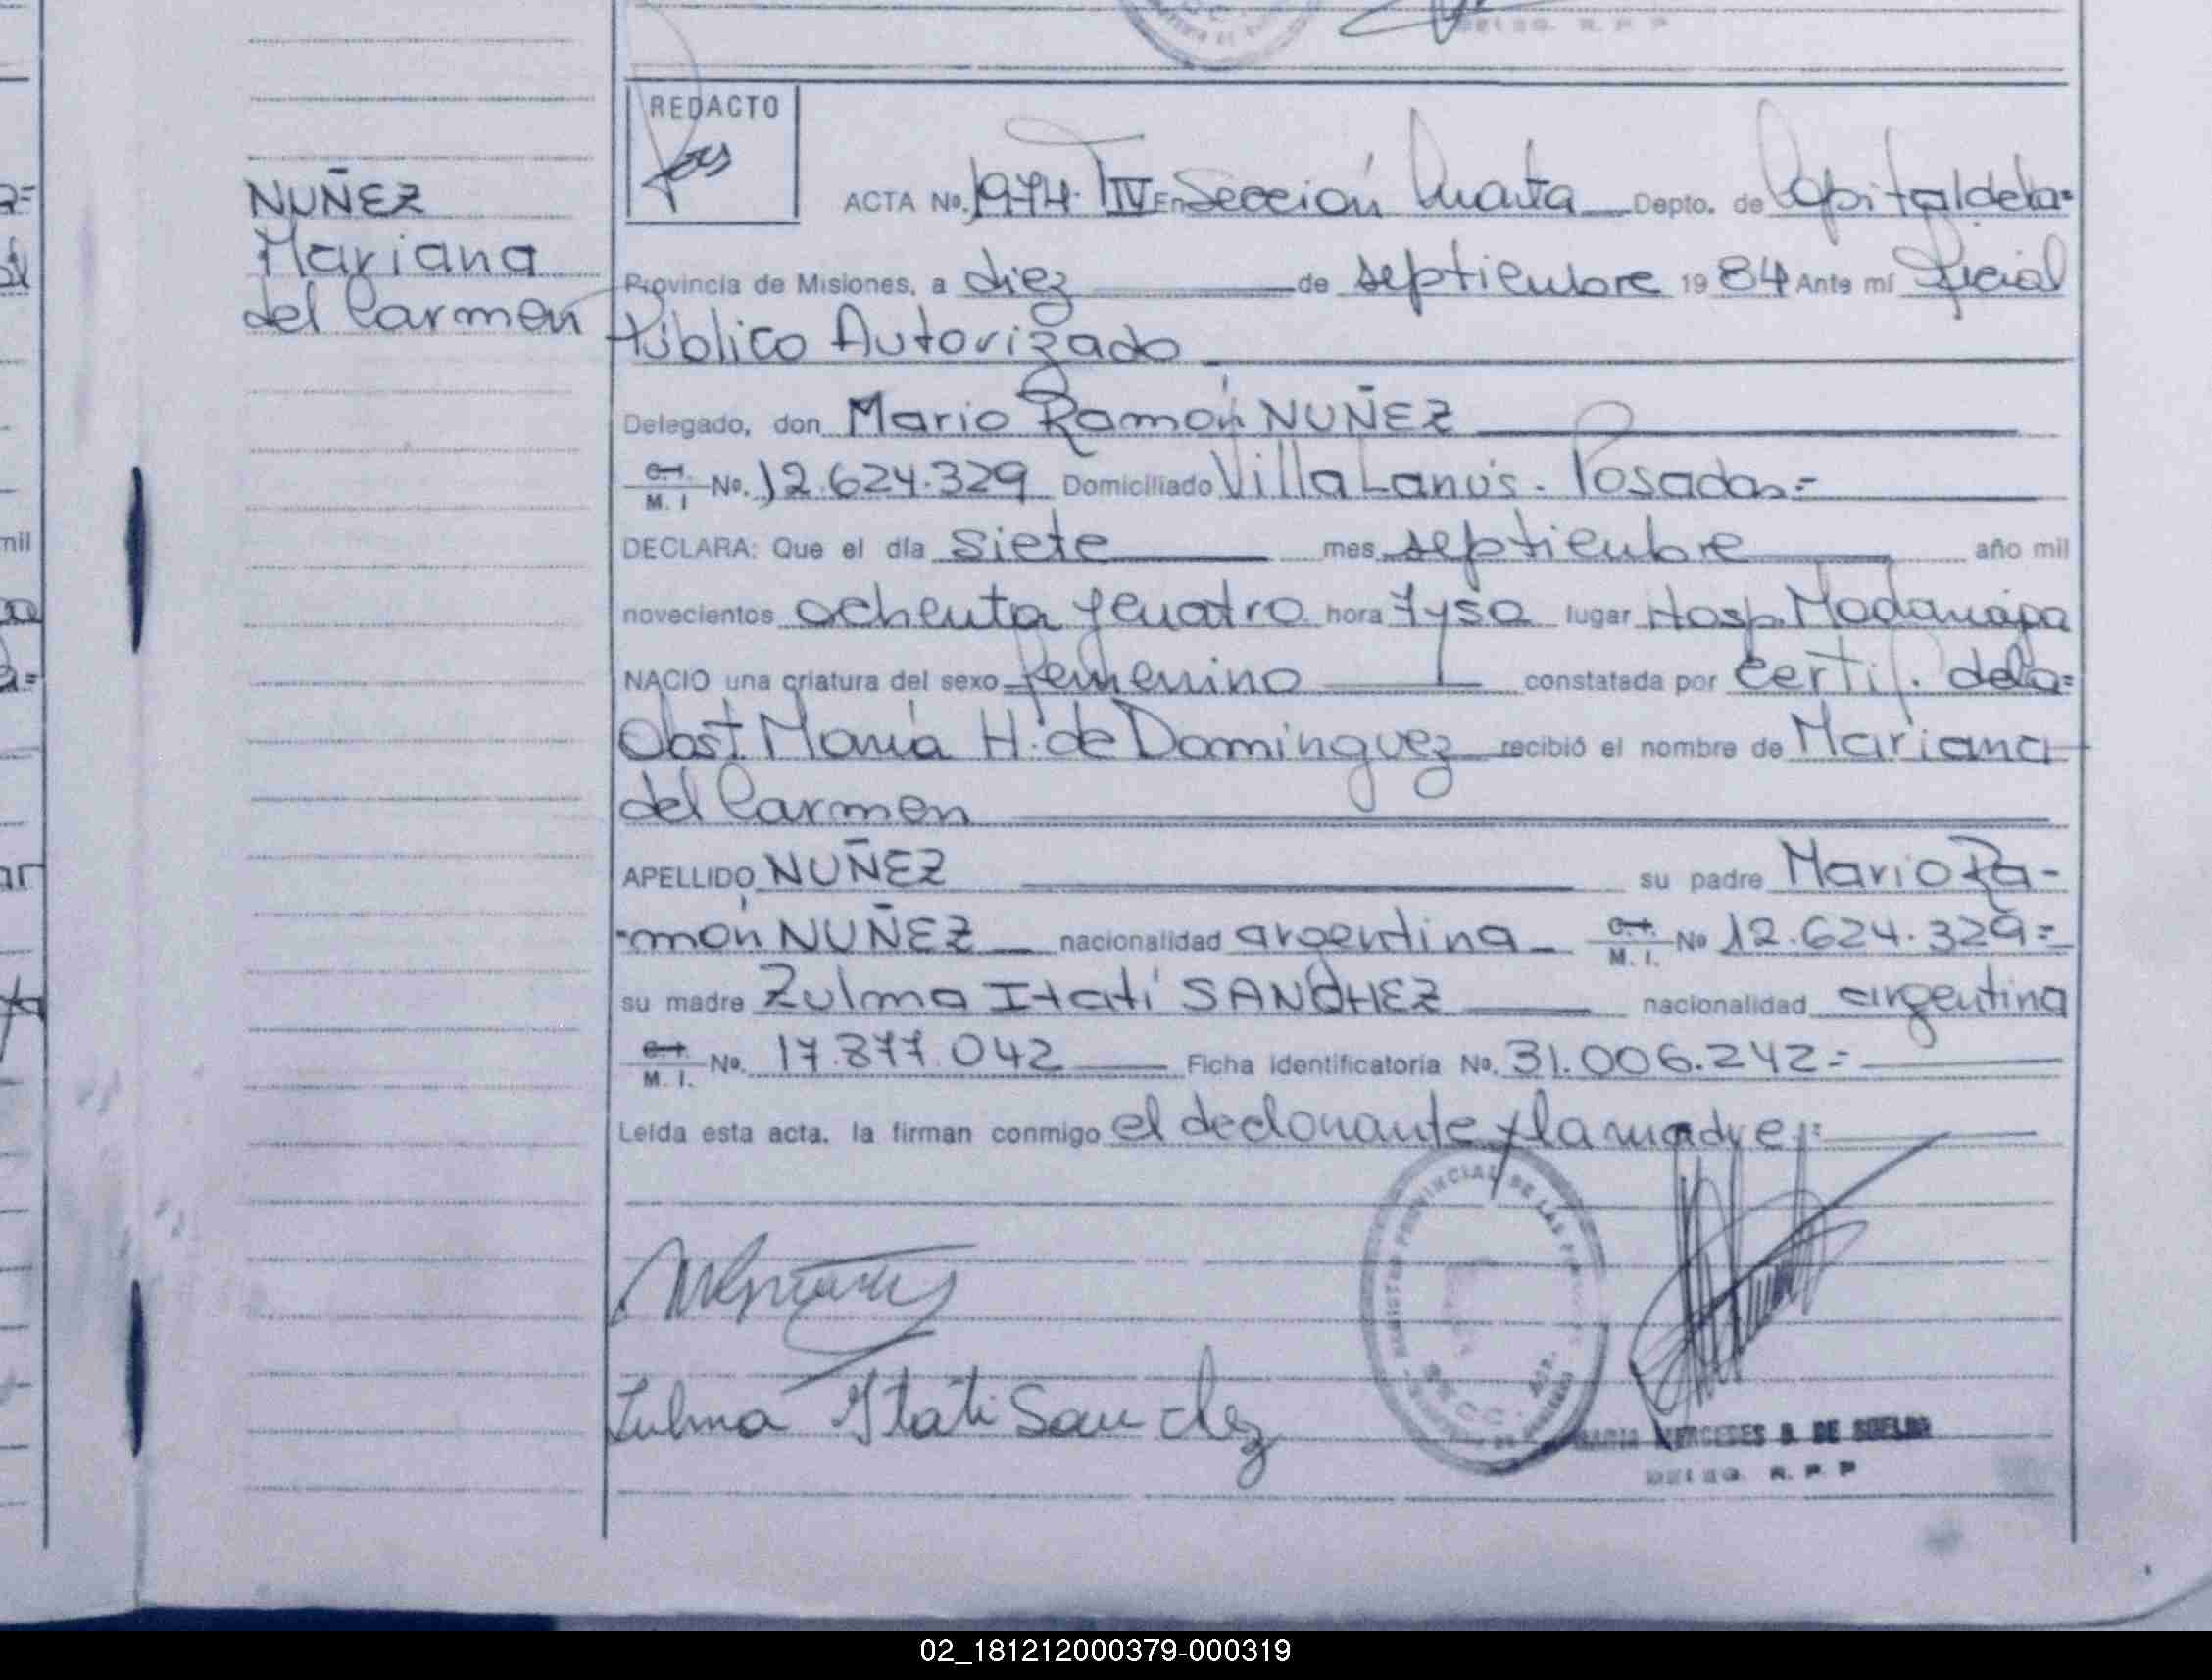 DELEG. R. P. P
REDACTO
NUÑEZ
Mariana
del Carmen
ACTA No. 1974. TIV En Sección Cuarta Depto. de Capital de la=
Provincia de Misiones, a diez de septiembre 1984 Ante mí Oficial
Público Autorizado
Delegado, don Mario Ramón NUÑEZ
C.I. M. I No. 12.624.329 Domiciliado Villa Lanús. Posadas=
DECLARA: Que el día siete mes septiembre año mil
novecientos ochenta y cuatro hora 7y50 lugar Hosp. Madariaga
NACIO una criatura del sexo femenino constatada por certif. de la=
Obst. María H. de Domínguez recibió el nombre de Mariana
del Carmen
APELLIDO NUÑEZ su padre Mario Ra-
-món NUÑEZ nacionalidad argentina C.I. M. I. No 12.624.329=
su madre Zulma Itatí SANCHEZ nacionalidad argentina
C.I. M. I. No. 17.877.042 Ficha identificatoria No. 31.006.242=
Leída esta acta. la firman conmigo el declarante y la madre=
REGISTRO PROVINCIAL DE LAS
Zulma Itati Sanchez
MARIA MERCEDES B. DE
DELEG. R. P. P
02_181212000379-000319